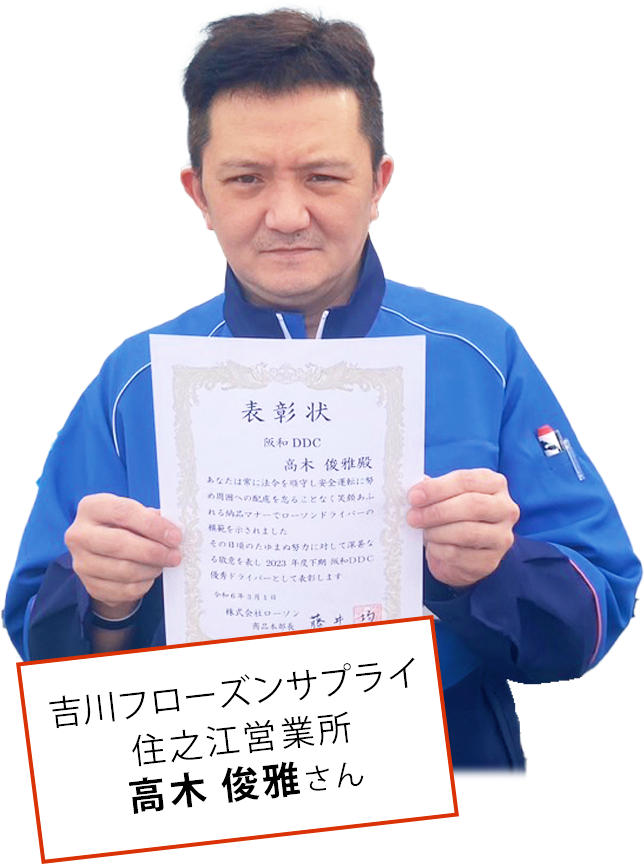 表彰状
阪和DDC
高木 俊雅殿
あなたは常に法令を順守し安全運転に努
め周囲への配慮を怠ることなく笑顔あふ
れる納品マナーでローソンドライバーの
模範を示されました
その日頃のたゆまぬ努力に対して深甚な
る敬意を表し2023年度下期 阪和DDC
優秀ドライバーとして表彰します
令和6年3月1日
株式会社ローソン
商品本部長 藤井 均
吉川フローズンサプライ
住之江営業所
高木 俊雅さん